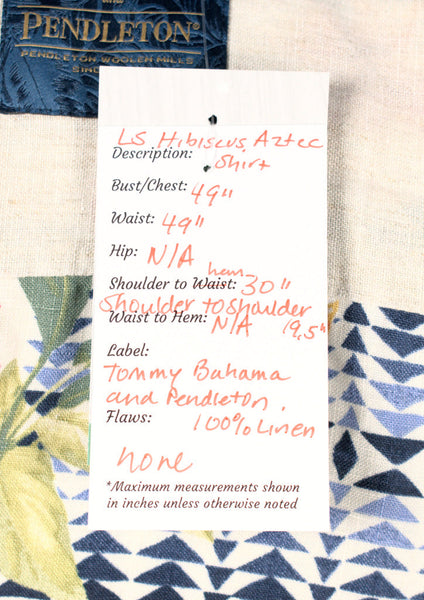 and
PENDLETON
PENDLETON WOOLEN MILLS
SINCE
LS Hibiscus Aztec
Description: Shirt
Bust/Chest: 49"
Waist: 49"
Hip: N/A
hem
Shoulder to Waist: 30"
Shoulder to shoulder
Waist to Hem: N/A 19.5"
Label:
Tommy Bahama
and Pendleton.
Flaws: 100% Linen
none
*Maximum measurements shown
in inches unless otherwise noted